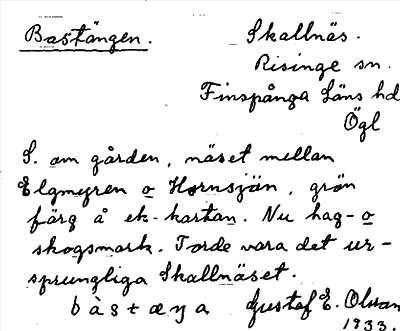 Bastängen. Skallnäs.
Risinge sn.
Finspånga Läns hd
Ögl
S. om gården, näset mellan
Elgmyren o Hornsjön, grön
färg å ek-kartan. Nu hag- o
skogsmark. Torde vara det ur-
sprungliga Skallnäset.
bàstæŋa Gustaf E. Olsson
1933.